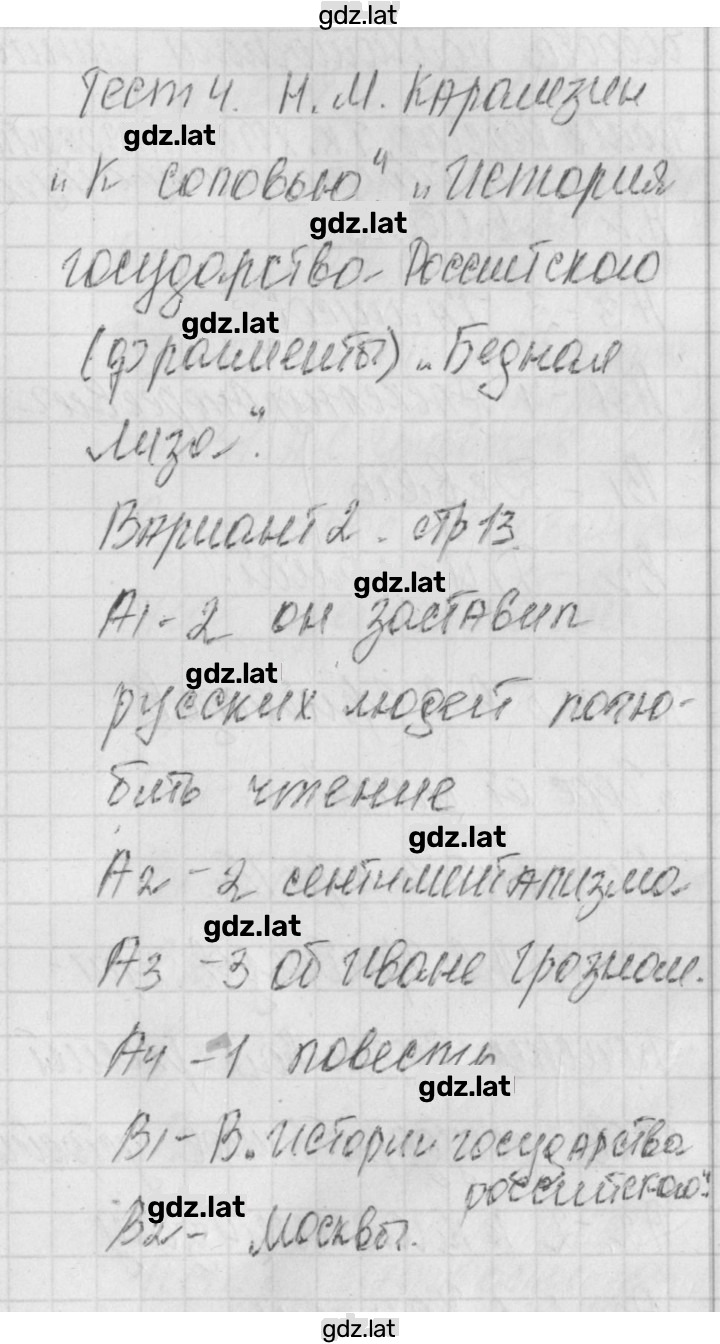 gdz.lat
Тест 4. Н. М. Карамзин
gdz.lat
„К соловью“ „История
gdz.lat
государства Российского
gdz.lat
(фрагменты) „Бедная
Лиза“.
Вариант 2. стр 13.
gdz.lat
А1 - 2 он заставил
gdz.lat
русских людей полю-
бить чтение
gdz.lat
А2 - 2 сентиментализма
gdz.lat
А3 - 3 об Иване Грозном.
А4 - 1 повесть
gdz.lat
В1 - В „Истории государства
российского“.
gdz.lat
В2 - Москвы.
gdz.lat